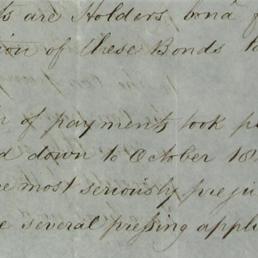 ts are Holders, bonâ f
tion of these Bonds
n of payments took p
d down to October 18
e most seriously preju
e several pressing appli